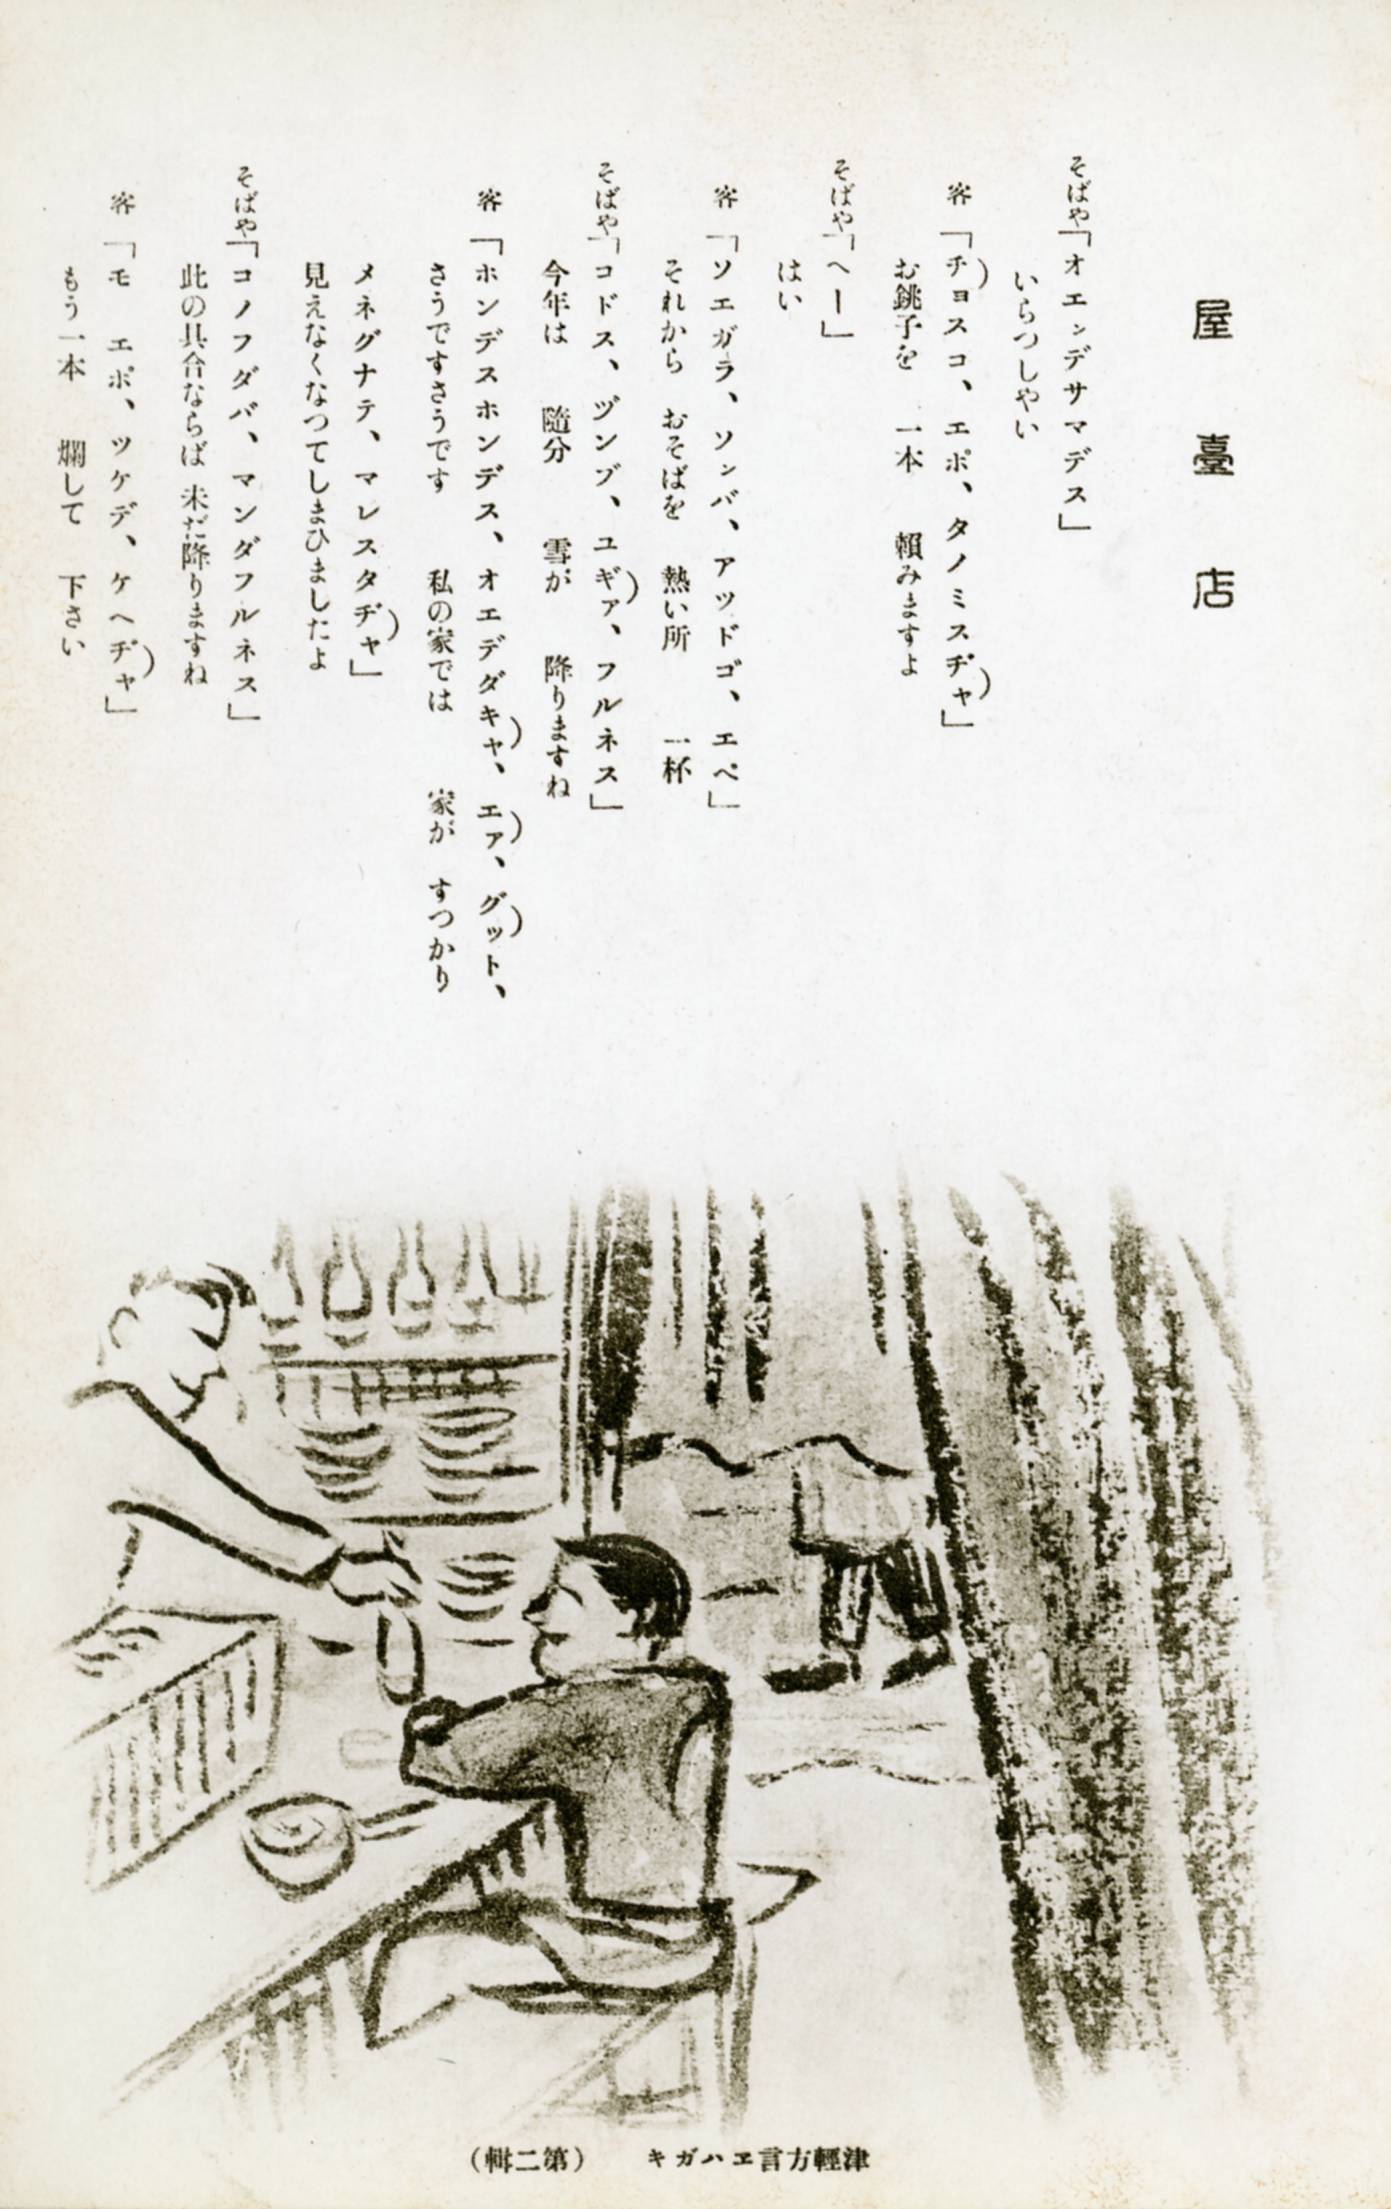 屋臺店
そばや「オエンデサマデス」
いらつしやい
客「チョスコ、エポ、タノミスヂャ」
お銚子を 一本 賴みますよ
そばや「ヘー」
はい
客「ソエガラ、ソンバ、アツドゴ、エペ」
それから おそばを 熱い所 一杯
そばや「コドス、ヅンブ、ユギァ、フルネス」
今年は 隨分 雪が 降りますね
客「ホンデスホンデス、オエデダキャ、エァ、グット、
さうですさうです 私の家では 家が すつかり
メネグナテ、マレスタヂャ」
見えなくなつてしまひましたよ
そばや「コノフダバ、マンダフルネス」
此の具合ならば 未だ降りますね
客「モ エポ、ツケデ、ケヘヂャ」
もう一本 燗して 下さい
津輕方言エハガキ (第二輯)